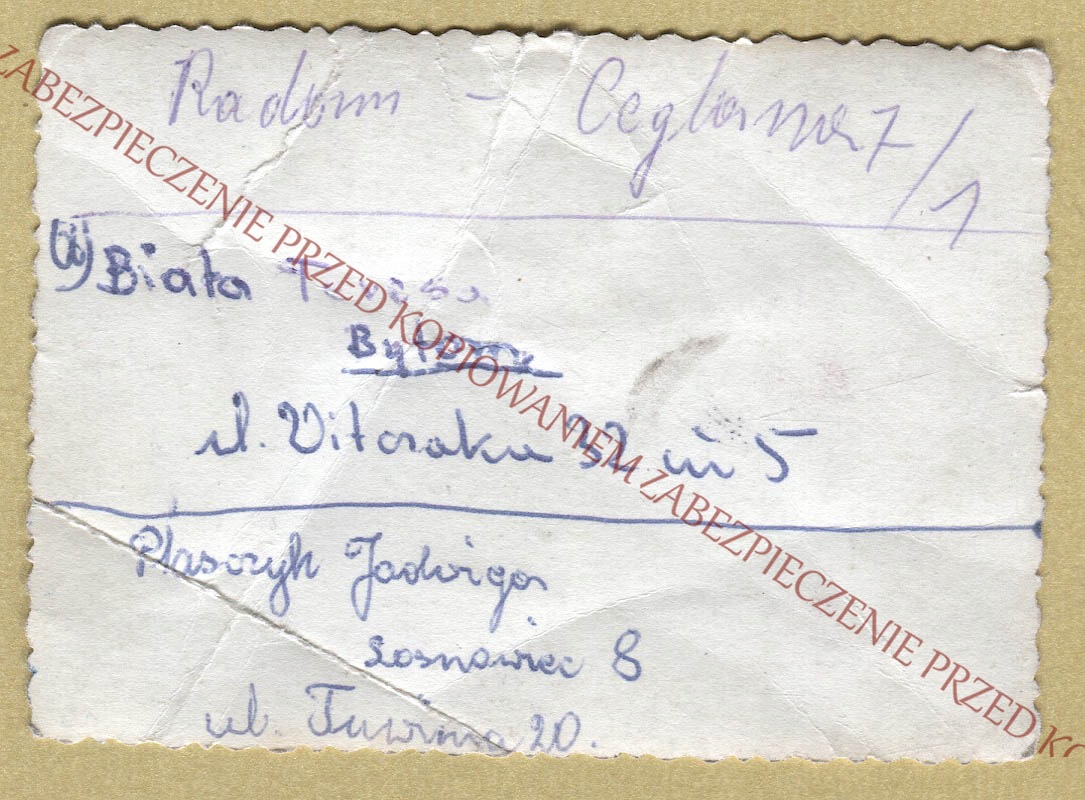 Radom - Ceglana 7/1
Biała Teresa
Bytom
ul. Witczaka 32 m 5
Ptaszyk Jadwiga
Sosnowiec 8
ul. Tuwima 20.
ZABEZPIECZENIE PRZED KOPIOWANIEM ZABEZPIECZENIE PRZED KO